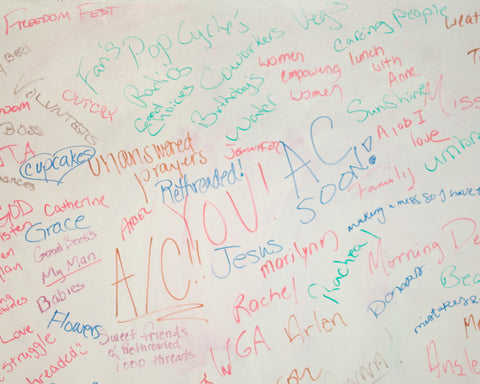 Freedom Fest
Fan's
Popcycle's
Veg's
Caring People
Radios
Coworkers
women
empowering
women
lunch
with
Anne
Volunteers
OUTCRY
Good
Choices
Birthday's
Water
Sunshine
Miss
BOSS
A job I
love
cupcakes
unanswered
prayers
Jennifer
AC
SOON!
umbr
Rethreaded!
Family
GOD
Catherine
Ariel
YOU!
making a mess so I have t
Grace
Jesus
Good Books
My Man
A/C!!
marilynn
Rachael
Morning De
Babies
Rachel
Donors
Bea
Love
Flowers
mistakes
Struggle
Sweet friends
of Rethreaded
1000 threads
WGA
Arlen
Angle